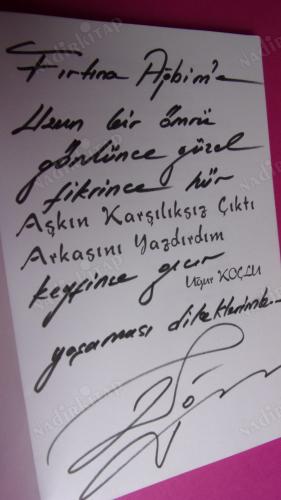 Fırtına Ağbim'e
Uzun bir ömrü
gönlünce güzel
fikrince hür
Aşkın Karşılıksız Çıktı
Arkasını Yazdırdım
keyfince gıcır
Uğur KOÇLU
yaşaması dileklerimle..
NadirKitap